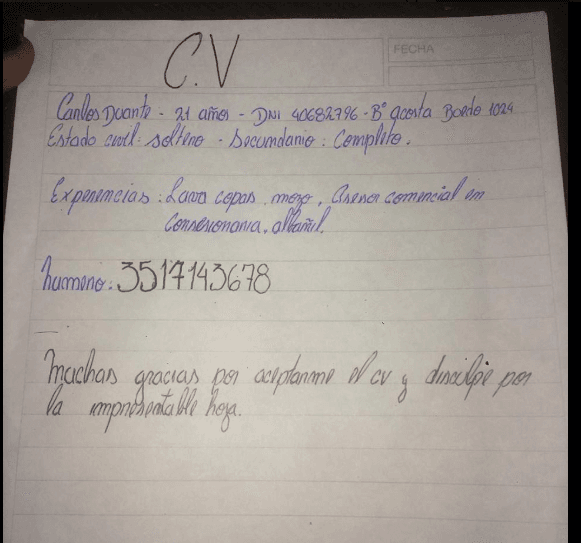 FECHA
C.V
Carlos Duarte - 21 años - DNI 40682796 - B° acosta Boedo 1024
Estado civil: soltero - Secundario: Completo.
Experiencias: Lava copas, mozo, Asesor comercial en
Consesionaria, albañil.
numero: 3517143678
Muchas gracias por aceptarme el cv y disculpe por
la impresentable hoja.